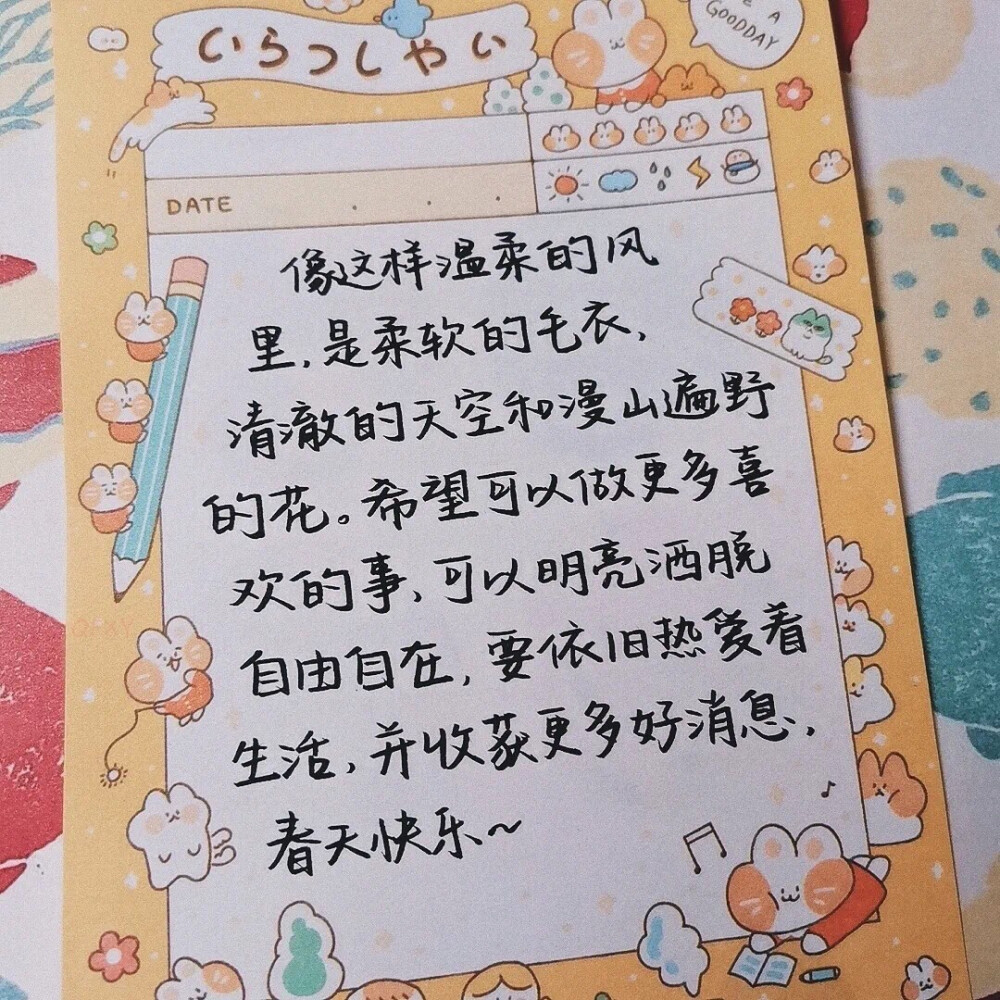 いらっしゃい
A
GOODDAY
DATE
像这样温柔的风
里,是柔软的毛衣,
清澈的天空和漫山遍野
的花。希望可以做更多喜
欢的事,可以明亮洒脱
自由自在,要依旧热爱着
生活,并收获更多好消息,
春天快乐~